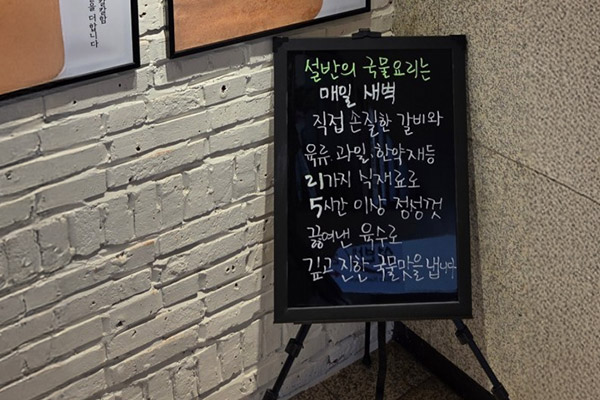 설반의 국물요리는
매일 새벽
직접 손질한 갈비와
육류.과일.한약재등
21가지 식재료로
5시간 이상 정성껏
끓여낸 육수로
깊고 진한 국물맛을 냅니다
을 더합니다